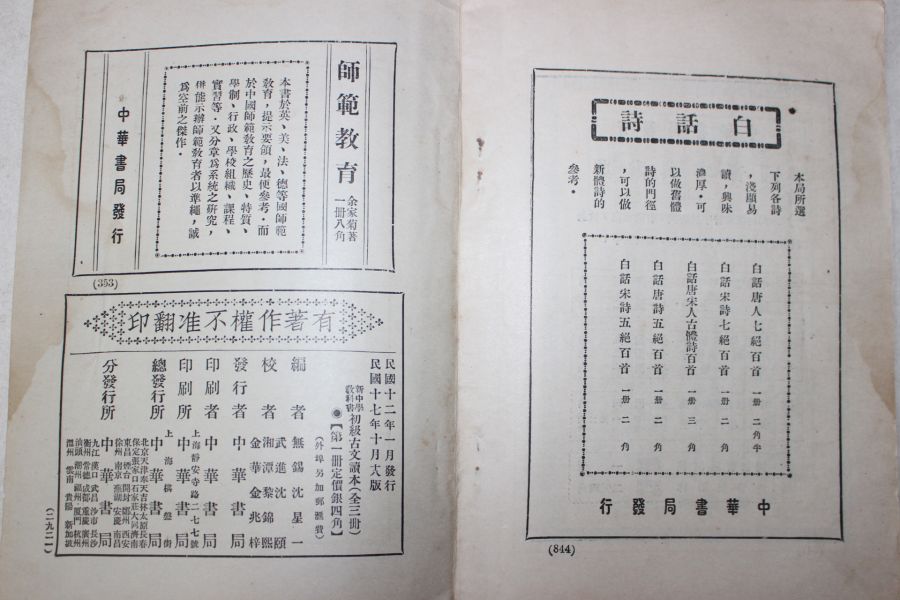 白話詩
本局所選
下列各詩
，淺顯易
讀，興味
濃厚，可
以做舊體
詩的門徑
，可以做
新體詩的
參考。
白話唐人七絕百首 一册 二角半
白話宋詩七絕百首 一册 二角
白話唐宋人古體詩百首 一册 三角
白話唐詩五絕百首 一册 二角
白話宋詩五絕百首 一册 二角
中華書局發行
(844)
師範教育
余家菊著
一册八角
本書於英、美、法、德等國師範
教育，提示要領，最便參考。而
於中國師範教育之歷史、特質、
學制、行政、學校組織、課程、
實習等，又分章爲系統之研究，
併能示辦師範教育者以準繩，誠
爲空前之傑作。
中華書局發行
(353)
有著作權不准翻印
民國十二年一月發行
民國十七年十月版
新中學教科書 初級古文讀本（全三册）
【第一册定價銀四角】
（外埠另加郵匯費）
編者 無錫沈星一
校者 武進沈頤
湘潭黎錦熙
金華金兆梓
發行者 中華書局
印刷者 中華書局
印刷所 上海靜安寺路二七七號 中華書局
總發行所 上海棋盤街 中華書局
分發行所 中華書局
北京 天津 奉天 吉林 太原 長春
保定 張家口 石家莊 大同 濟南
東昌 煙台 開封 鄭州 西安
徐州 南京 蕪湖 安慶 南昌
九江 漢口 武昌 沙市 長沙
衡州 常德 成都 重慶 廣州
汕頭 潮州 福州 厦門 杭州
溫州 雲南 貴陽 新加坡
（二九二一）